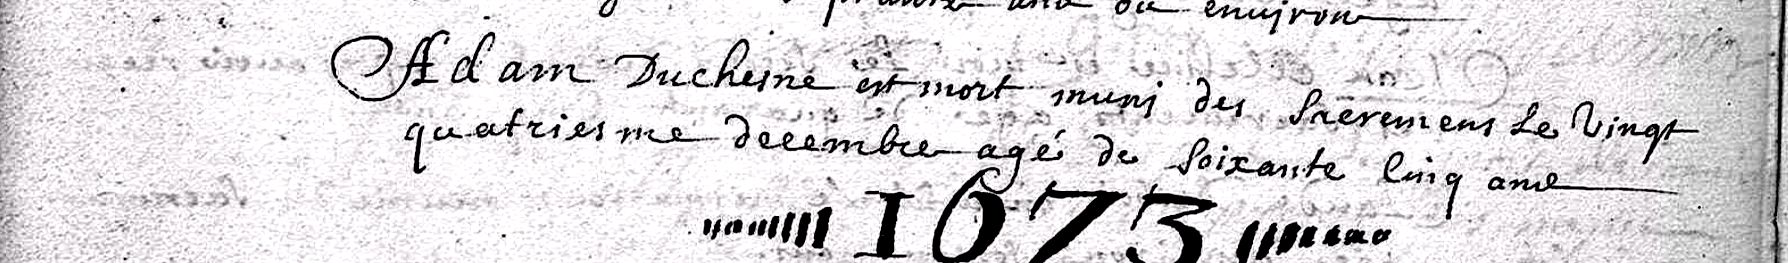 ans ou environ
Adam Duchesne est mort muni des Sacremens Le Vingt
quatriesme decembre agé de Soixante cinq ans
1673